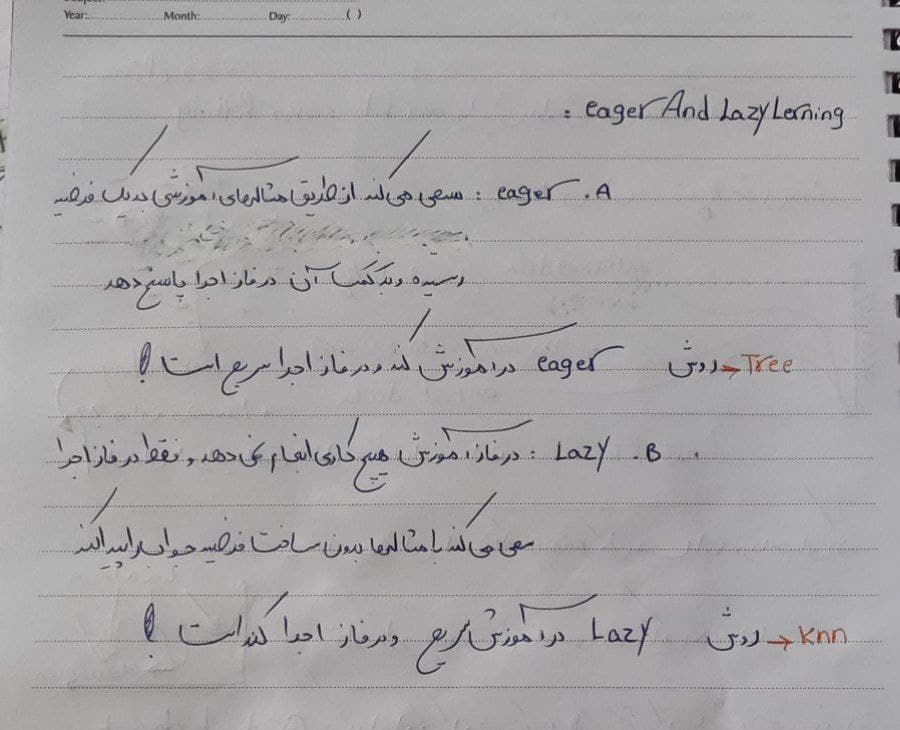 Year: Month: Day: ( )
eager And Lazy Lerning :
A. eager : سعی می کند از طریق مثالهای آموزشی به یک فرضیه
رسیده و به کمک آن در فاز اجرا پاسخ دهد
Tree → روش eager در آموزش کند و در فاز اجرا سریع است !
B. Lazy : در فاز آموزش هیچ کاری انجام نمی دهد و فقط در فاز اجرا
سعی می کند با مثالها بدون ساخت فرضیه جواب را پیدا کند
Knn → روش Lazy در آموزش سریع و در فاز اجرا کند است !